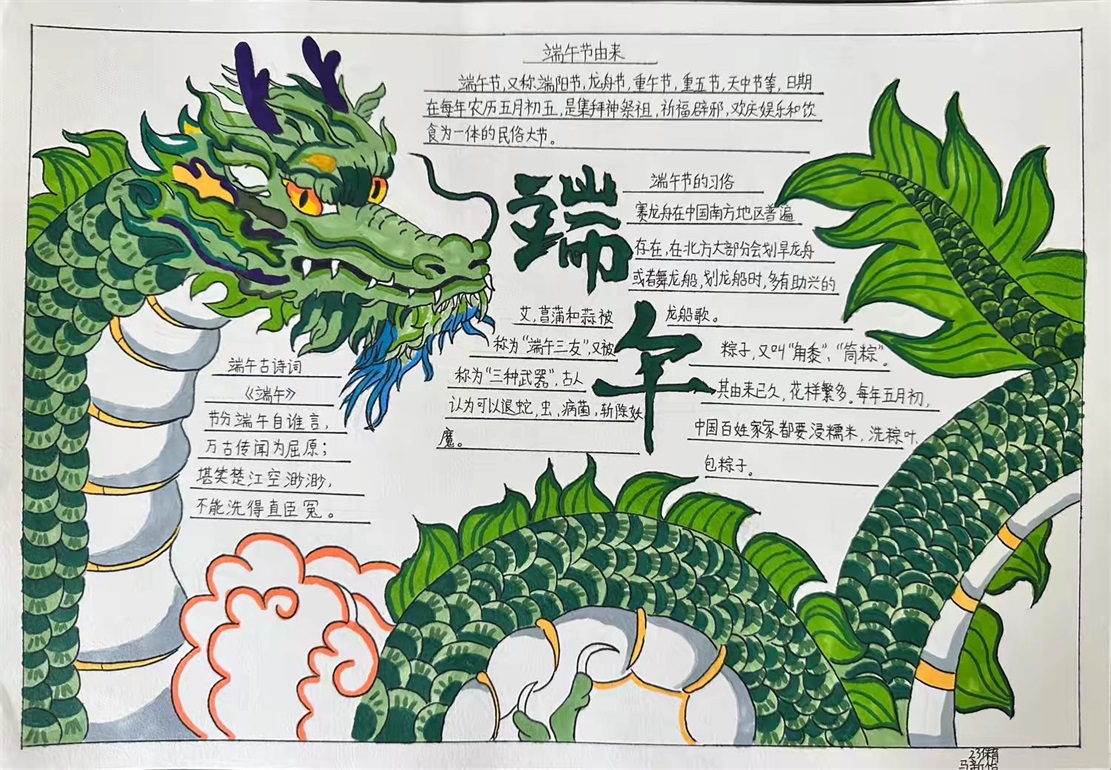 端午节由来
端午节,又称端阳节,龙舟节,重午节,重五节,天中节等,日期
在每年农历五月初五,是集拜神祭祖,祈福辟邪,欢庆娱乐和饮
食为一体的民俗大节。
端午
端午节的习俗
赛龙舟在中国南方地区普遍
存在,在北方大部分会划旱龙舟
或者舞龙船,划龙船时,多有助兴的
龙船歌。
艾,菖蒲和蒜被
称为“端午三友”,又被
称为“三种武器”,古人
认为可以退蛇,虫,病菌,斩除妖
魔。
粽子,又叫“角黍”、“筒粽”。
其由来已久,花样繁多。每年五月初,
中国百姓家家都要浸糯米,洗粽叶,
包粽子。
端午古诗词
《端午》
节分端午自谁言,
万古传闻为屈原;
堪笑楚江空渺渺,
不能洗得直臣冤。